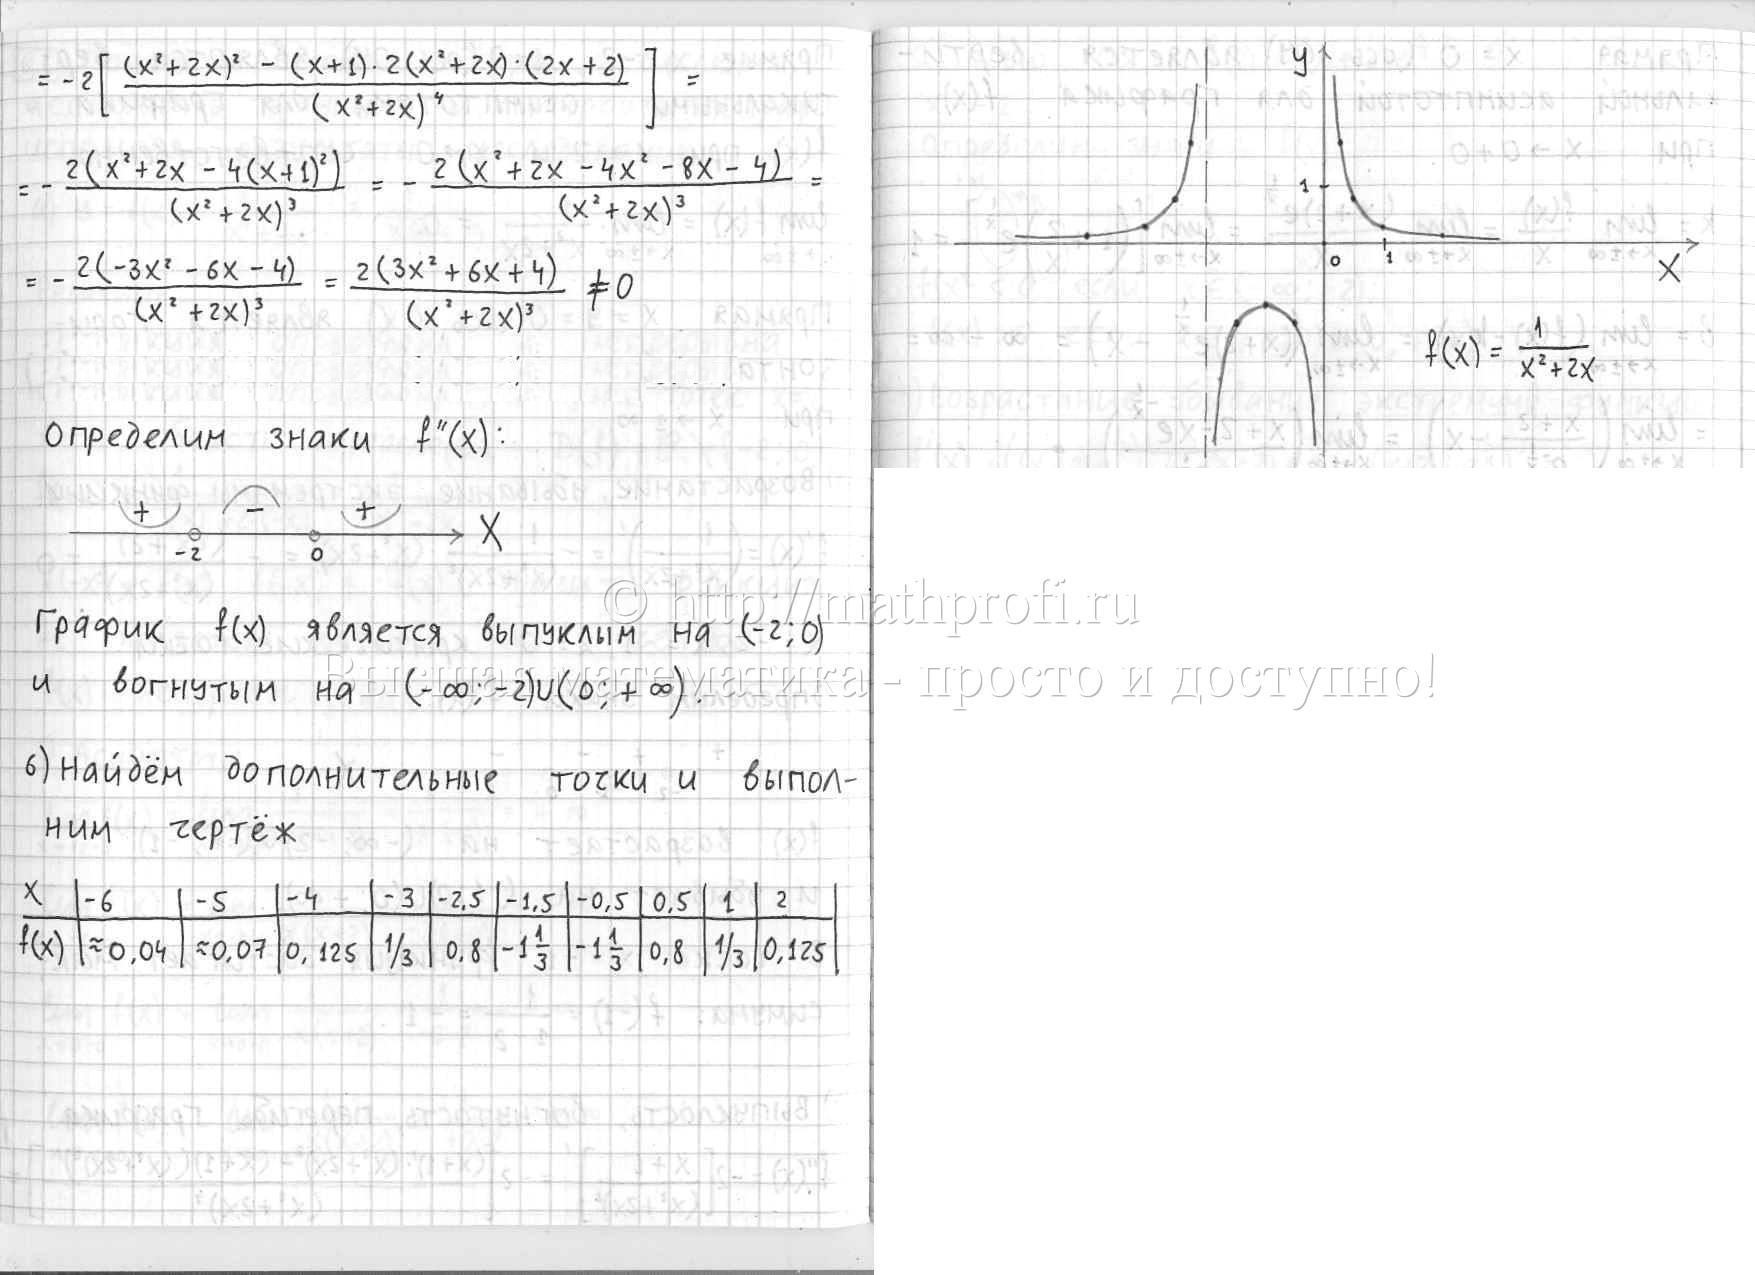 = -2[ ((x²+2x)² - (x+1)·2(x²+2x)·(2x+2)) / (x²+2x)⁴ ] =
= - 2(x²+2x - 4(x+1)²) / (x²+2x)³ = - 2(x²+2x - 4x² - 8x - 4) / (x²+2x)³ =
= - 2(-3x² - 6x - 4) / (x²+2x)³ = 2(3x²+6x+4) / (x²+2x)³ ≠ 0
Определим знаки f''(x):
+ - +
-2 0 X
График f(x) является выпуклым на (-2;0)
и вогнутым на (-∞;-2)∪(0;+∞).
6) Найдём дополнительные точки и выпол-
ним чертёж
x | -6 | -5 | -4 | -3 | -2,5 | -1,5 | -0,5 | 0,5 | 1 | 2
f(x) | ≈0,04 | ≈0,07 | 0,125 | 1/3 | 0,8 | -1 1/3 | -1 1/3 | 0,8 | 1/3 | 0,125
y
1
0 1 X
f(x) = 1 / (x²+2x)
© http://mathprofi.ru
Высшая математика - просто и доступно!